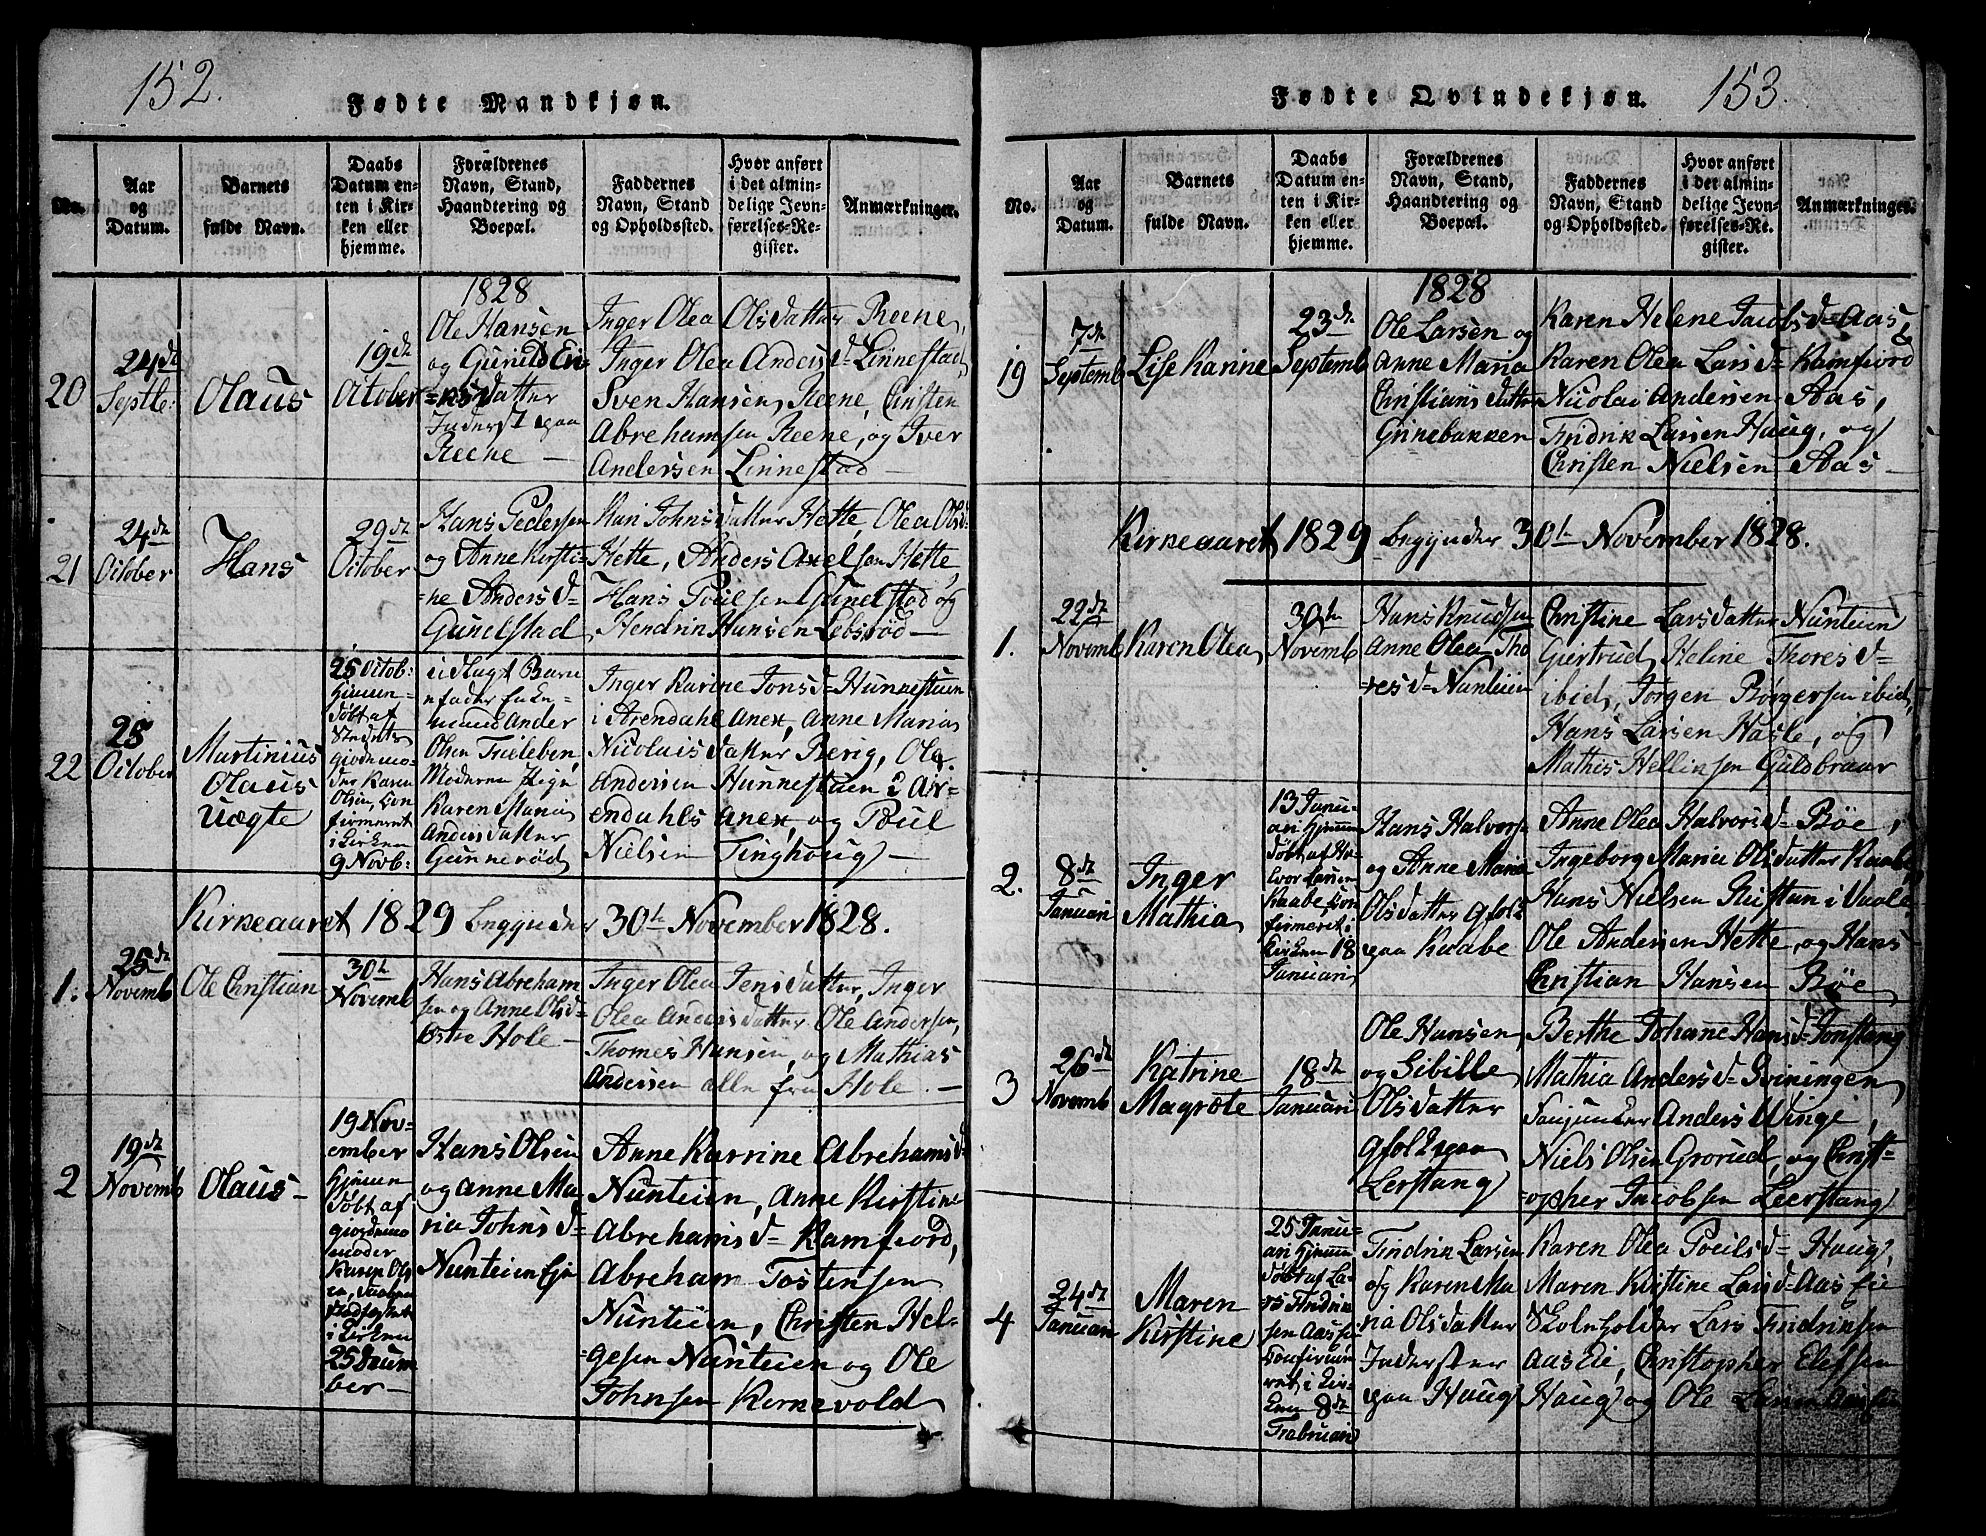 152.
Fødte Mandkjøn.
No.
Aar
og
Datum.
Barnets
fulde Navn.
Daabs
Datum en-
ten i Kir-
ken eller
hjemme.
Forældrenes
Navn, Stand,
Haandtering og
Boepæl.
Faddernes
Navn, Stand
og Opholdssted.
Hvor anført
i det almin-
delige Jevn-
førelses-Re-
gister.
Anmærkninger.
20
24de
Septbr:
Olaus
19de
October
1828
Ole Hansen
og Gunild Eri-
=ksdatter
Inderst paa
Reene —
Inger Olea Olsdatter Reene,
Inger Olea Andersd= Linnestad,
Sven Hansen, Reene, Christen
Abrehamsen Reene, og Iver
Andersen Linnestad —
21
24de
October
Hans
29de
October
Hans Pedersen
og Anne Kirsti-
ne Andersd=
Gunelstad
Kari Johnsdatter Hette, Olea Olsd=
Hette, Anders Axelsen Hette,
Hans Poulsen Gunelstad og
Hendrik Hansen Lebsrød —
22
25
October
Martinius
Olaus
Uægte
25 Octob:
Hjemme-
døbt af
giordemo-
der Karen
Olsen, Con
firmeret
i Kirken
9 Novb:
Olsen Trieleben,
Moderen Pige
Karen Maria
Andersdatter
Gunnerød
Inger Karine Jonsd= Hunnestuen
i Arendahl Anex, Anne Maria
Nicolaisdatter Berig, Ole
Andersen Hunnestuen i Ar-
endahls Anex, og Poul
Nielsen Tinghoug —
Kirkeaaret 1829 begynder 30te November 1828.
1.
25de
Novemb
Ole Christian
30te
Novemb
Hans Abreham
sen og Anne Olsd=
Østre Hole —
Inger Olea Jensdatter, Inger
Olea Andersdatter Ole Andersen,
Thomes Hansen, og Mathias
Andersen alle fra Hole. —
2
19de
Novemb
Olaus —
19 Nov-
ember
Hjemme
døbt af
giordemo
moder
Karen Ols
i Kirken
25 Decem
ber —
Hans Olsen
og Anne Ma-
ria Johnsd=
Nunteien Eje
Anne Karrine Abrehamsd=
Nunteien, Anne Kirstine
Abrehamsd= Ramfiord,
Abreham Tostensen
Nunteien, Christen Hel-
=gesen Nunteien og Ole
Johnsen Kirkevold
153.
Fødte Qvindekjøn.
No.
Aar
og
Datum.
Barnets
fulde Navn.
Daabs
Datum en-
ten i Kir-
ken eller
hjemme.
Forældrenes
Navn, Stand,
Haandtering og
Boepæl.
Faddernes
Navn, Stand
og Opholdssted.
Hvor anført
i det almin-
delige Jevn-
førelses-Re-
gister.
Anmærkninger.
19
7de
Septemb
Lise Karine
23de
Septemb
1828
Ole Larsen og
Anne Maria
Christiansdatter
Grinebakken
Karen Helene Jacobsd= Aas &
Karen Olea Larsd= Ramfiord
Nicolai Andersen Aas,
Fredrik Larsen Haug, og
Christen Nielsen Aas —
Kirkeaaret 1829 begynder 30te November 1828.
1.
22de
Novemb
Karen Olea
30te
Novemb
Hans Knudsen
Anne Olea Tho
=resd= Nunteien
Christine Larsdatter Nunteien
Giertrud Heline Thoresd=
ibid, Jørgen Børgersen ibid,
Hans Larsen Hasle, og
Mathis Hellinsen Guldbraar
2.
8de
Januari
Inger
Mathia
13 Janu-
ari Hjemme
døbt af Ha-
lvor Larsen
Raabe, Con
firmeret i
Kirken 18
Januari
Hans Halvors-
og Anne Maria
Olsdatter Gfolk
paa Raabe
Anne Olea Halvorsd= Bøe,
Ingeborg Maria Olsdatter Raabe
Hans Nielsen Ruistun i Vaale
Ole Andersen Hette, og Hans
Christian Hansen Bøe
3
26de
Novemb
Katrine
Magrete
18de
Januari
Ole Hansen,
og Sibille
Olsdatter
Gfolk paa
Lerstang
Berthe Johane Hansd= Tonstang
Mathia Andersd= Sviningen
Anders Winge,
Niels Olsen Grorud, og Christ-
=opher Jacobsen Leerstang
4
24de
Januari
Maren
Kirstine
25 Janu-
ari Hjemme
døbt af La-
rs Fredrik
sen Aas
Confirme
ret, i Kir-
ken 8de
Frabruari
Fredrik Larsen
og Karen Ma-
ria Olsdatter
Inderster
paa Haug
Karen Olea Poulsd= Haug,
Maren Kirstine Larsd= Aas Eie
Skoleholder Lars Fredriksen
Aas Eie, Christopher Elefsen
Haug og Ole Larsen